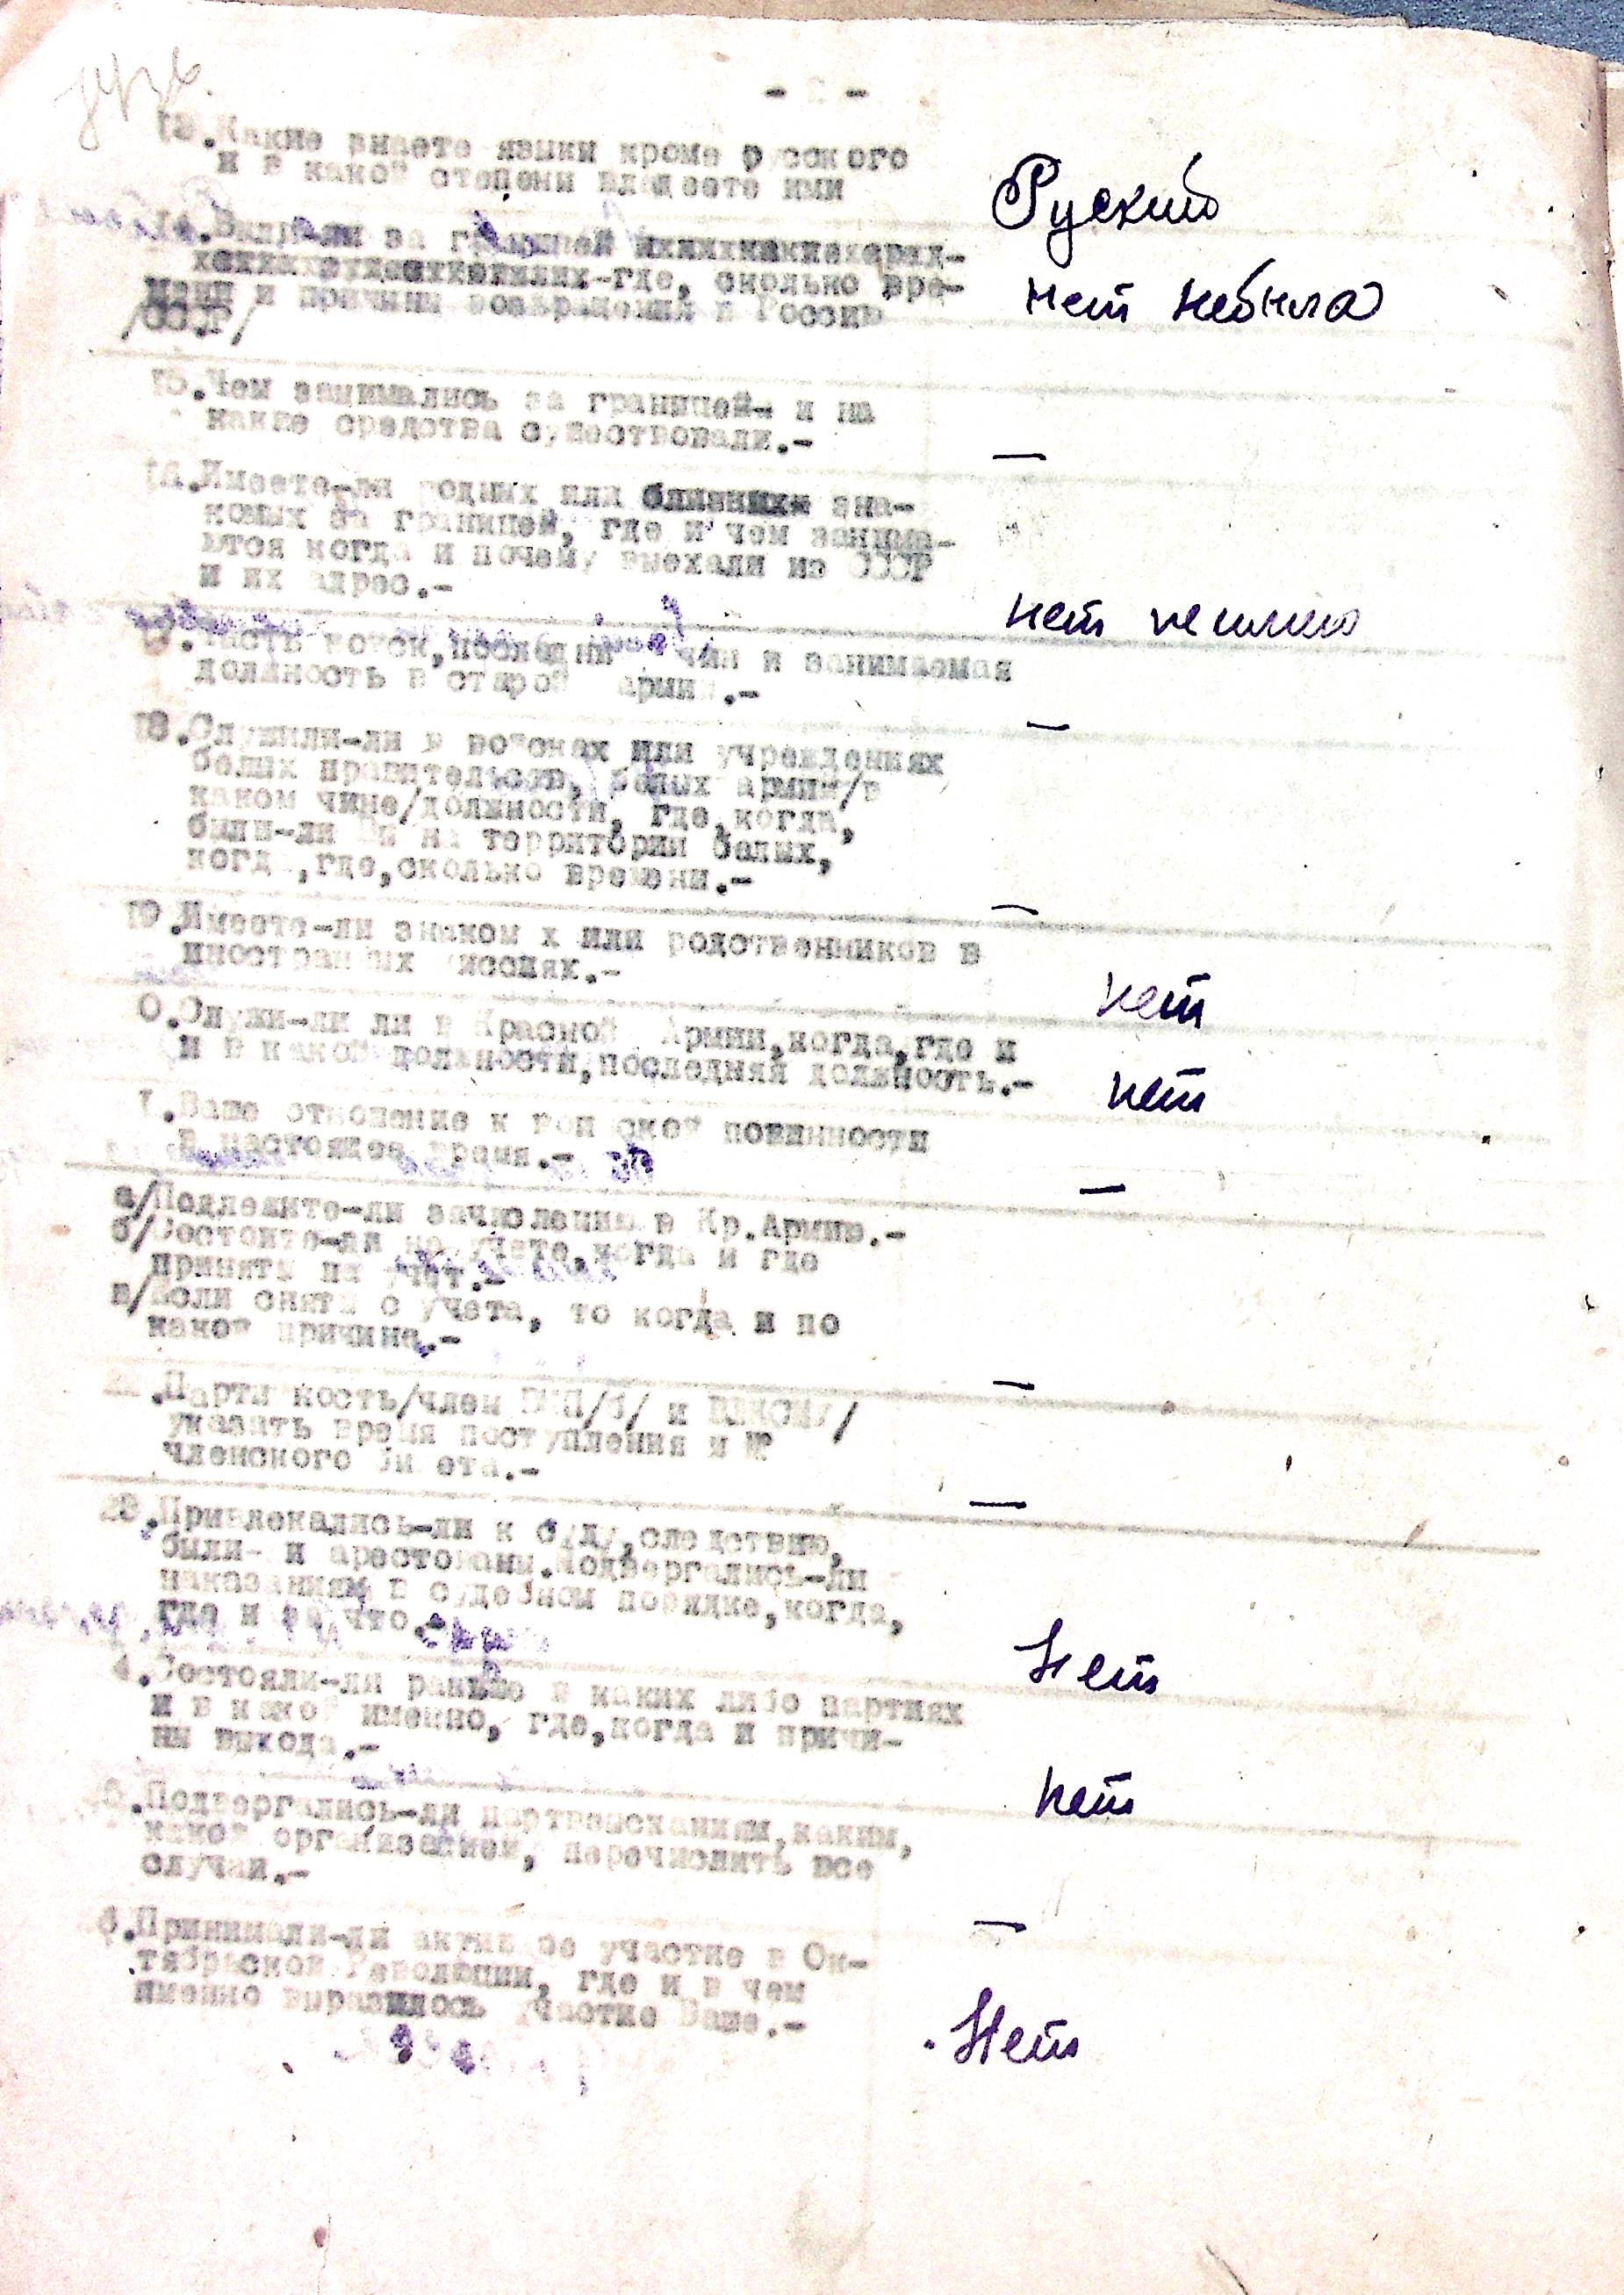 - 2 -
13.Какие знаете языки кроме русского
и в какой степени владеете ими
Руский
14.Были-ли за границей
где, сколько вре-
мени и причины возвращения в Россию
/СССР/
нет небыла
15.Чем занимались за границей- и на
какие средства существовали.-
—
16.Имеете-ли родных или близких зна-
комых за границей, где и чем занима-
ются когда и почему выехали из СССР
и их адрес.-
нет не имею
17.Часть войск,последний чин и занимаемая
должность в старой армии.-
—
18.Служили-ли в войсках или учреждениях
белых правительств, белых армий/в
каком чине/должности, где,когда,
были-ли Вы на территории белых,
когда,где,сколько времени.-
—
19.Имеете-ли знакомых или родственников в
иностранных миссиях.-
нет
0.Служи-ли ли в Красной Армии,когда,где и
и в какой должности,последняя должность.-
нет
1.Ваше отношение к воинской повинности
в настоящее время.-
—
а/Подлежите-ли зачислению в Кр.Армию.-
б/Состоите-ли на учете,когда и где
приняты на учет.-
в/Если сняты с учета, то когда и по
какой причине.-
—
22.Партийность/член ВКП/б/ и ВЛКСМ/
указать время поступления и №
членского билета.-
—
23.Привлекались-ли к суду,следствию,
были- и арестованы.Подвергались-ли
наказаниям в судебном порядке,когда,
где и за что.-
Нет
4.Состояли-ли раньше в каких либо партиях
и в какой именно, где,когда и причи-
ны выхода.-
нет
5.Подвергались-ли партвзысканиям,каким,
какой организацией, перечислить все
случаи.-
—
6.Принимали-ли активное участие в Ок-
тябрьской Революции, где и в чем
именно выразилось участие Ваше.-
Нет